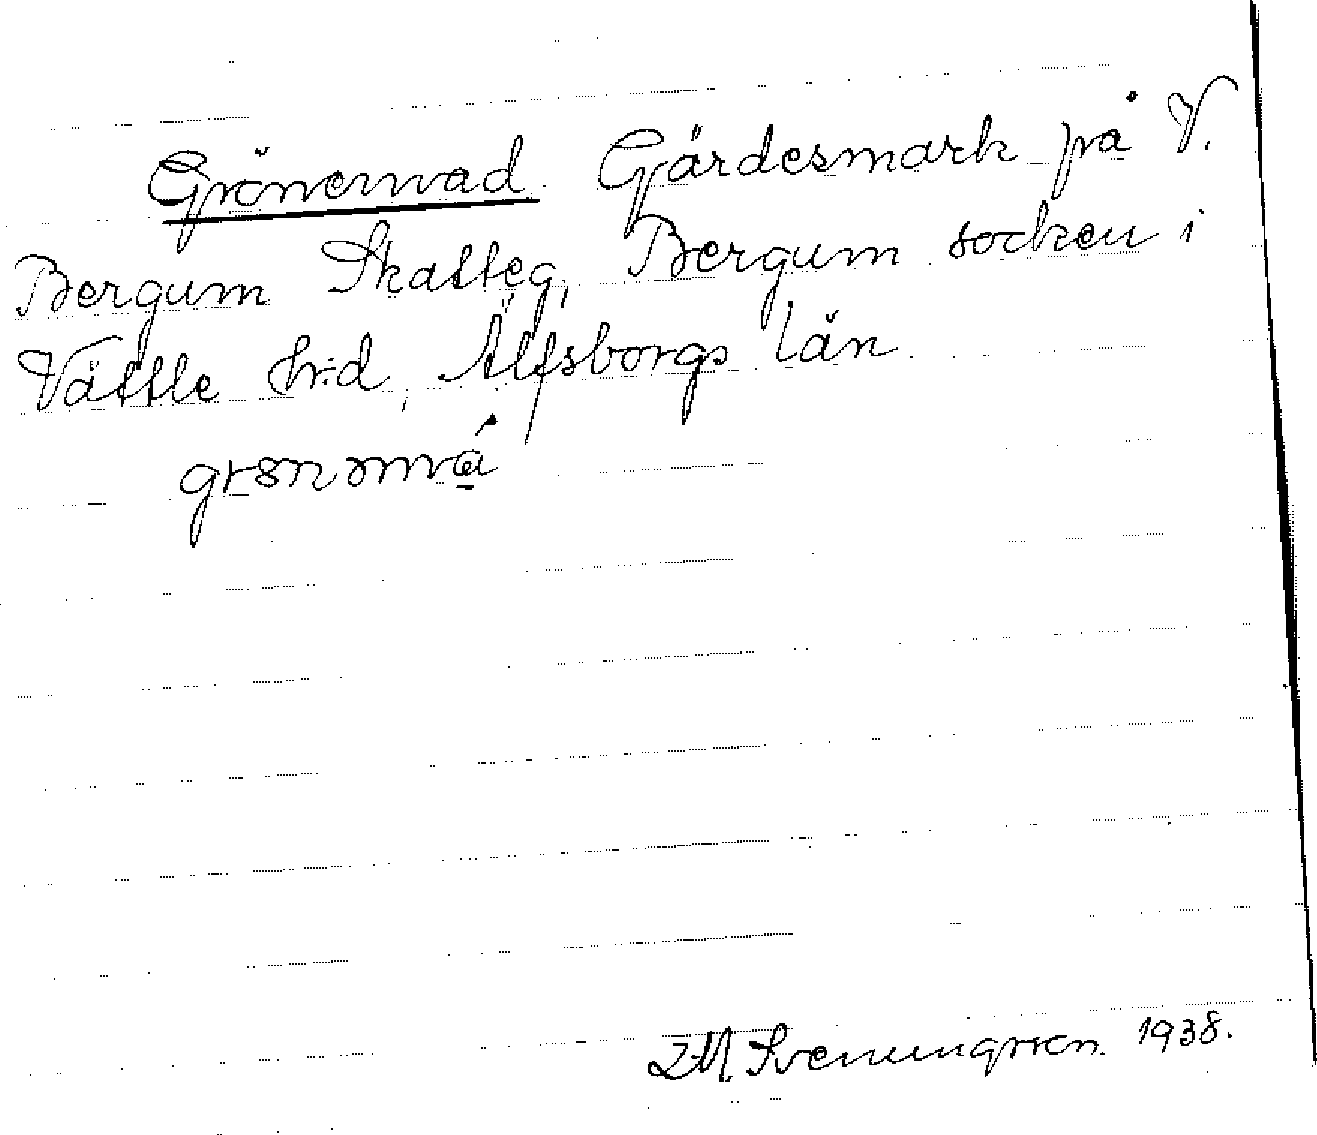 Grönervad. Gärdesmark på V.
Bergum Skatteg, Bergum socken i
Vättle hrd, Älfsborgs län
LM Svenungsson. 1938.